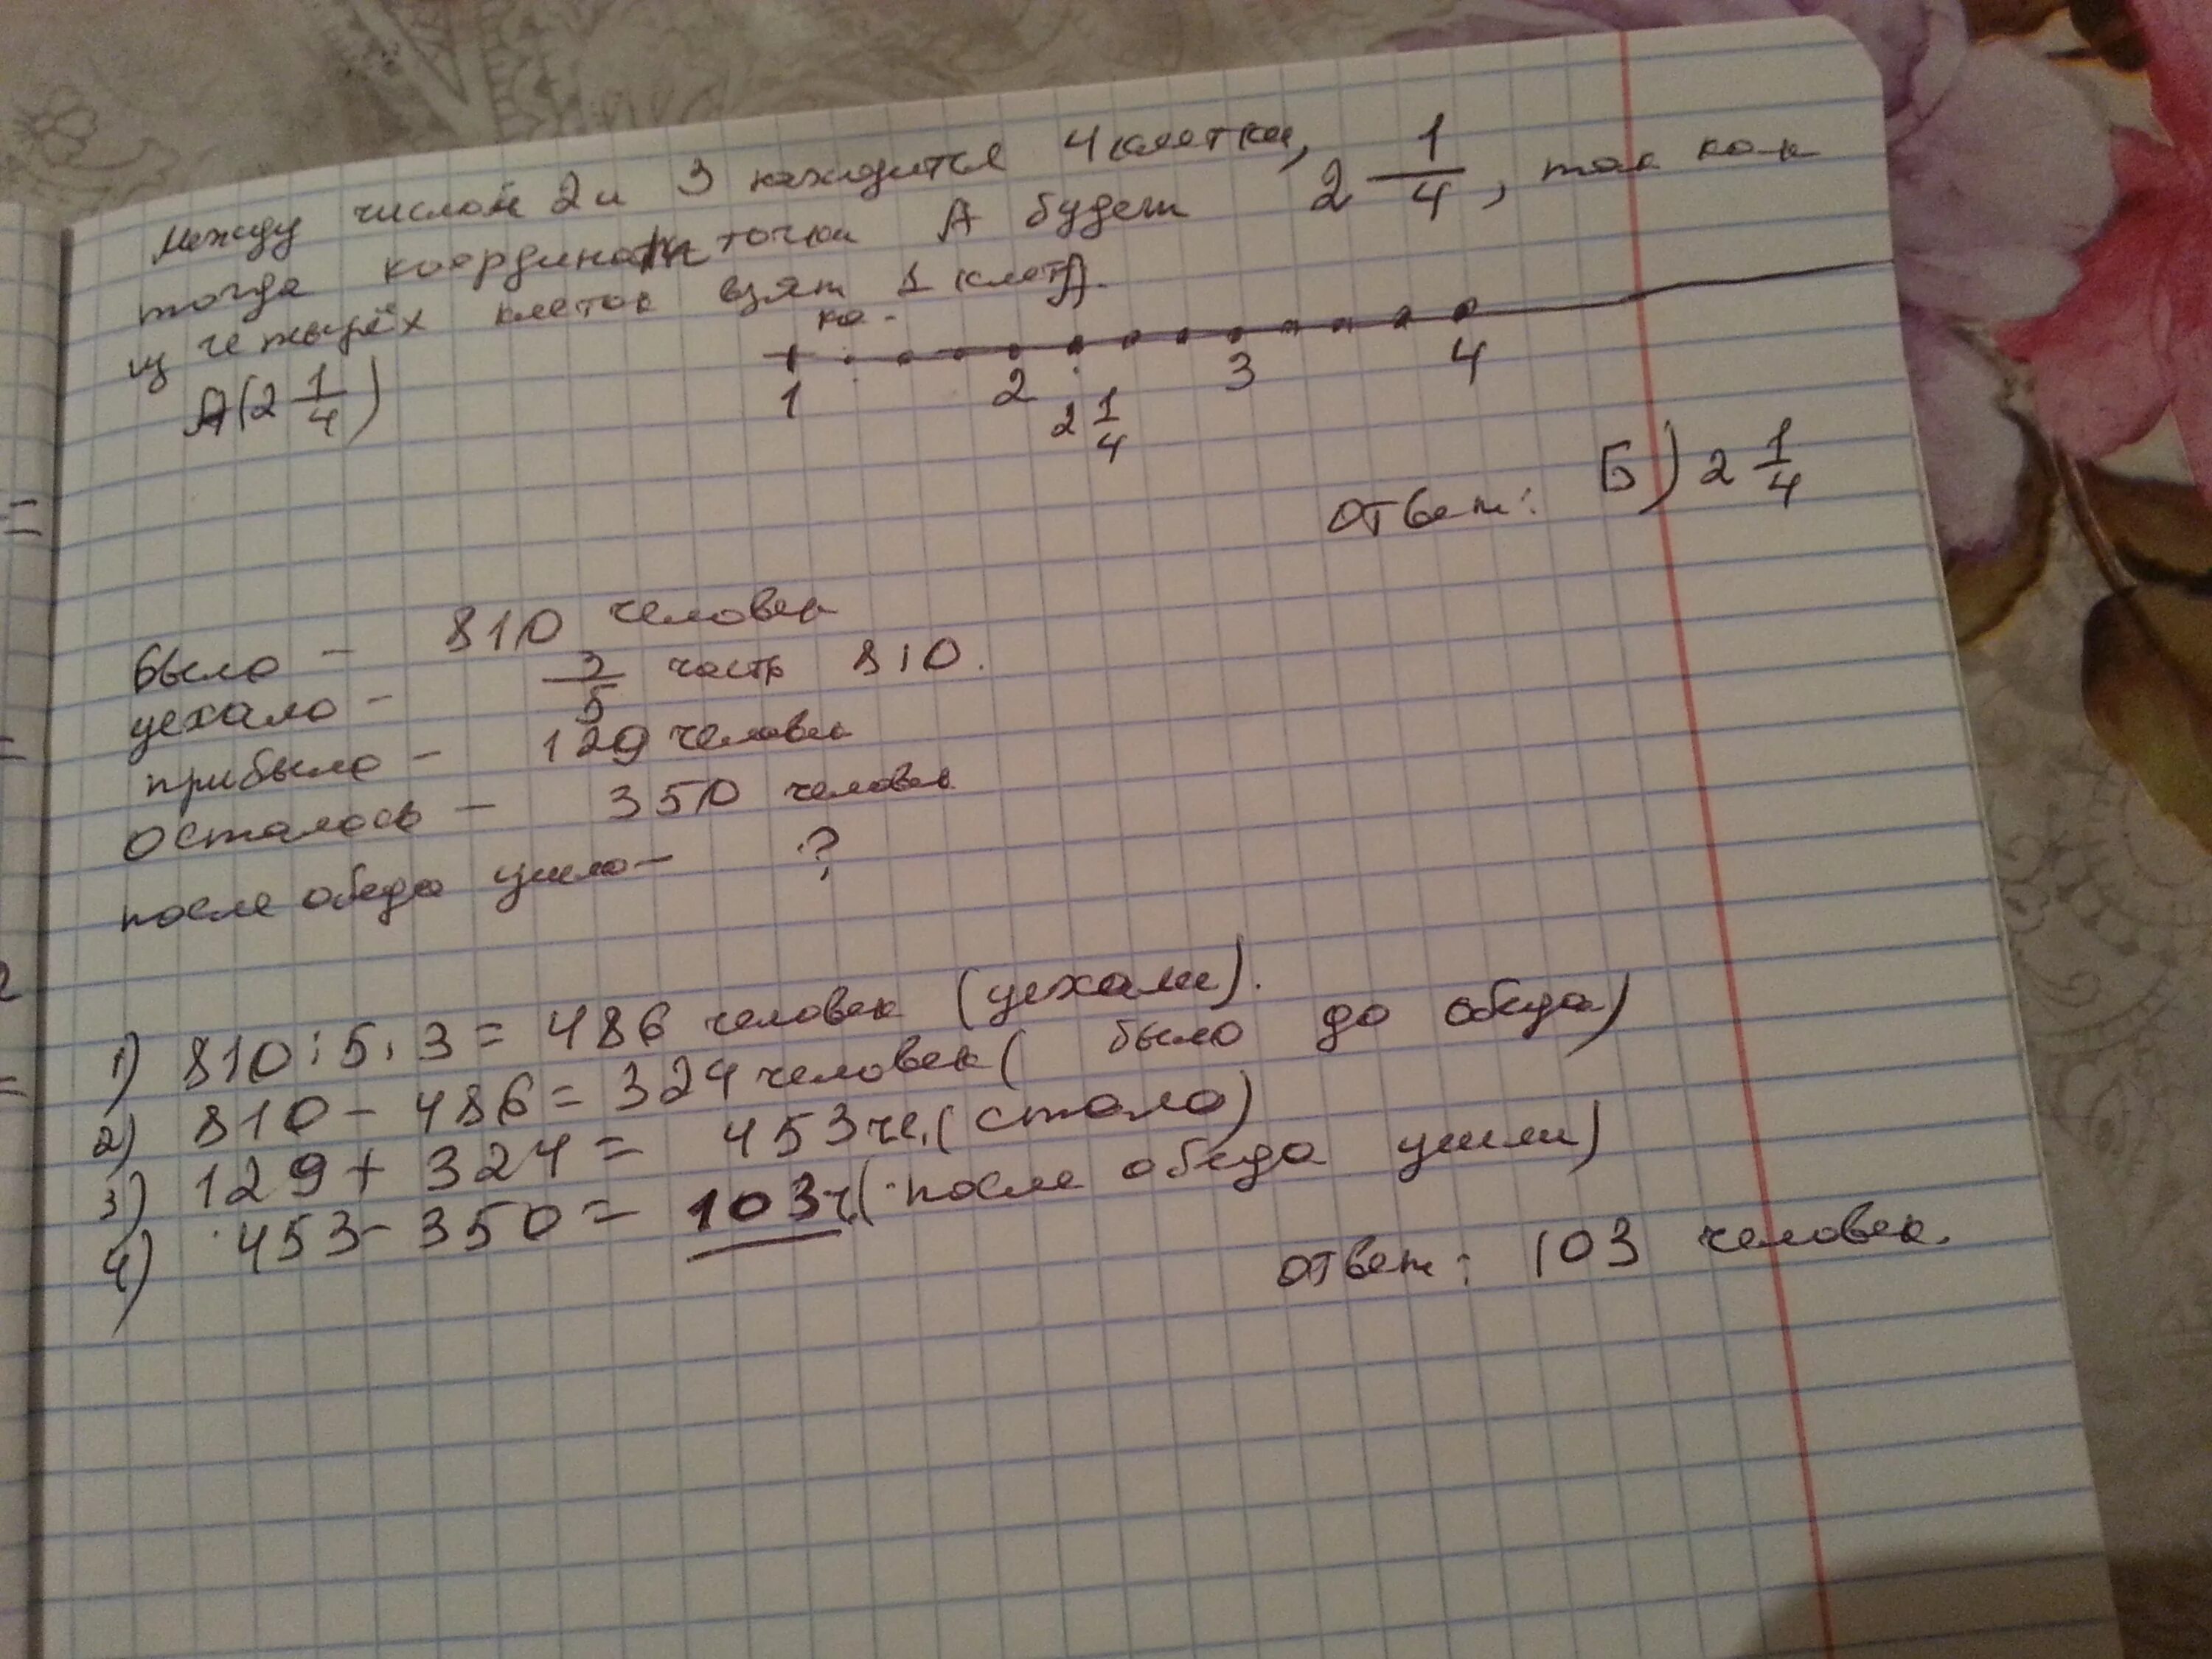 Между числом 2 и 3 находится 4 клетки,
тогда координаты точки А будет 2 1/4, так как
из четырёх клеток взят 1 клет
ка.
А
А(2 1/4)
1 2 3 4
2 1/4
Ответ: Б) 2 1/4
Было - 810 человек
уехало - 3/5 часть 810.
прибыло - 129 человек
Осталось - 350 человек
после обеда ушло - ?
1) 810:5·3=486 человек (уехали).
2) 810-486=324 человек (было до обеда)
3) 129+324= 453 че. (стало)
4) 453-350= 103 ч. (после обеда ушли)
Ответ: 103 человек.